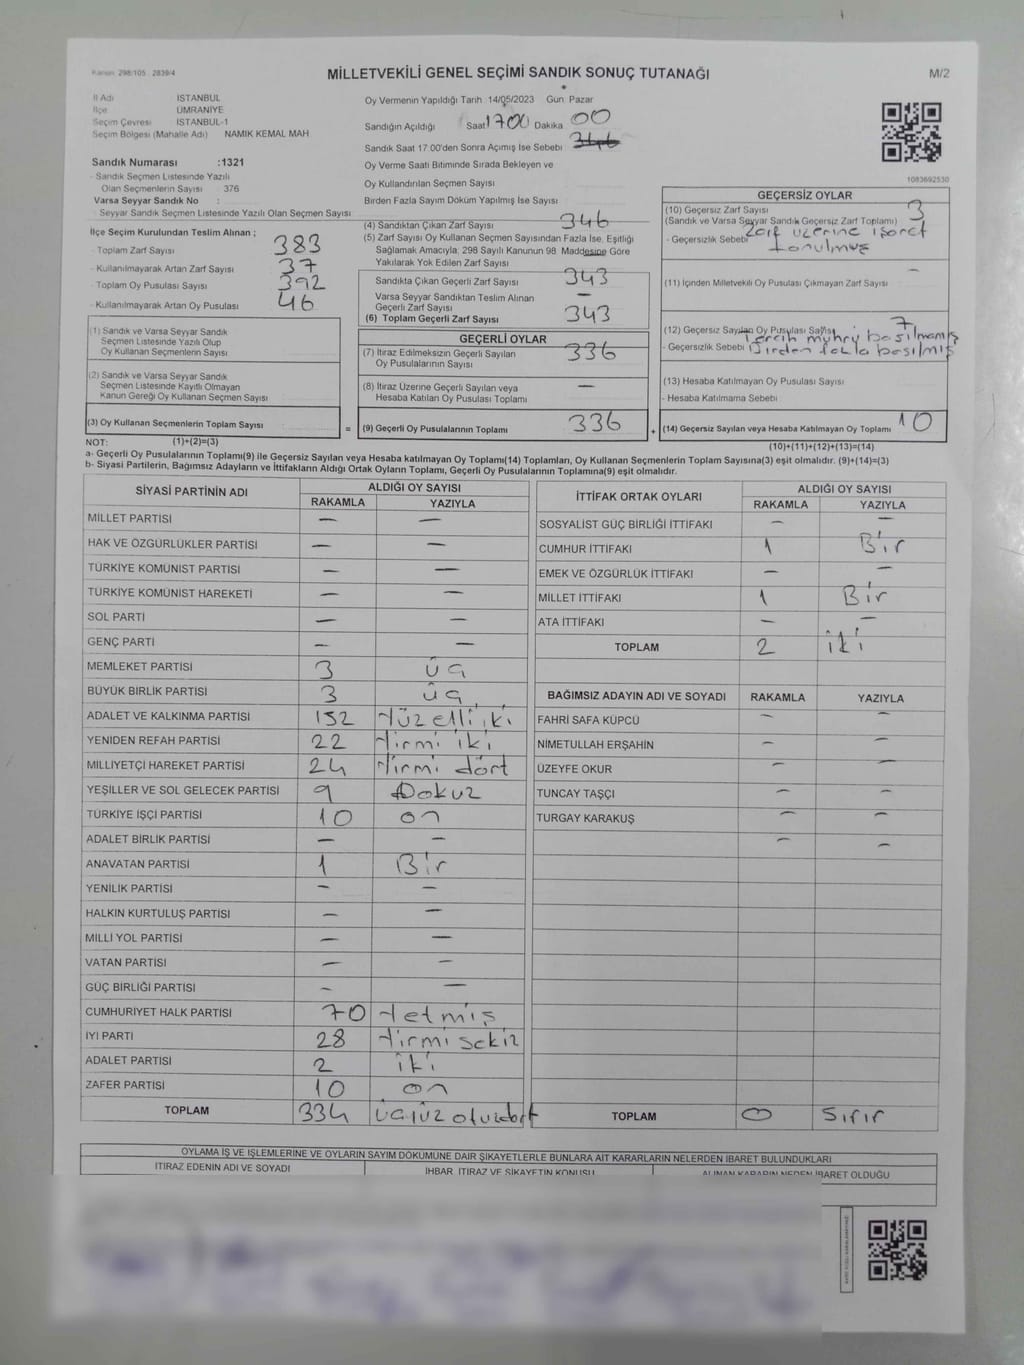 Kanun 298/105 2839/4
MİLLETVEKİLİ GENEL SEÇİMİ SANDIK SONUÇ TUTANAĞI
M/2
İl Adı İSTANBUL
İlçe ÜMRANİYE
Seçim Çevresi İSTANBUL-1
Seçim Bölgesi (Mahalle Adı) NAMIK KEMAL MAH
Sandık Numarası :1321
- Sandık Seçmen Listesinde Yazılı
Olan Seçmenlerin Sayısı 376
Varsa Seyyar Sandık No :
- Seyyar Sandık Seçmen Listesinde Yazılı Olan Seçmen Sayısı
İlçe Seçim Kurulundan Teslim Alınan ;
- Toplam Zarf Sayısı 383
- Kullanılmayarak Artan Zarf Sayısı 37
- Toplam Oy Pusulası Sayısı 392
- Kullanılmayarak Artan Oy Pusulası 46
(1) Sandık ve Varsa Seyyar Sandık
Seçmen Listesinde Yazılı Olup
Oy Kullanan Seçmenlerin Sayısı
(2) Sandık ve Varsa Seyyar Sandık
Seçmen Listesinde Kayıtlı Olmayan
Kanun Gereği Oy Kullanan Seçmen Sayısı
(3) Oy Kullanan Seçmenlerin Toplam Sayısı =
Oy Vermenin Yapıldığı Tarih 14/05/2023 Gün Pazar
Sandığın Açıldığı Saat 1700 Dakika 00
Sandık Saat 17:00'den Sonra Açımış İse Sebebi
Oy Verme Saati Bitiminde Sırada Bekleyen ve
Oy Kullandırılan Seçmen Sayısı
Birden Fazla Sayım Döküm Yapılmış İse Sayısı
(4) Sandıktan Çıkan Zarf Sayısı 346
(5) Zarf Sayısı Oy Kullanan Seçmen Sayısından Fazla İse, Eşitliği
Sağlamak Amacıyla; 298 Sayılı Kanunun 98. Maddesine Göre
Yakılarak Yok Edilen Zarf Sayısı
Sandıkta Çıkan Geçerli Zarf Sayısı 343
Varsa Seyyar Sandıktan Teslim Alınan
Geçerli Zarf Sayısı —
(6) Toplam Geçerli Zarf Sayısı 343
GEÇERLİ OYLAR
(7) İtiraz Edilmeksizin Geçerli Sayılan
Oy Pusulalarının Sayısı 336
(8) İtiraz Üzerine Geçerli Sayılan veya
Hesaba Katılan Oy Pusulası Toplamı —
(9) Geçerli Oy Pusulalarının Toplamı 336 +
1083692530
GEÇERSİZ OYLAR
(10) Geçersiz Zarf Sayısı 3
(Sandık ve Varsa Seyyar Sandık Geçersiz Zarf Toplamı)
- Geçersizlik Sebebi Zarf üzerine işaret
konulmuş
(11) İçinden Milletvekili Oy Pusulası Çıkmayan Zarf Sayısı —
(12) Geçersiz Sayılan Oy Pusulası Sayısı 7
- Geçersizlik Sebebi Tercih mührü basılmamış
Birden fazla basılmış
(13) Hesaba Katılmayan Oy Pusulası Sayısı
- Hesaba Katılmama Sebebi
(14) Geçersiz Sayılan veya Hesaba Katılmayan Oy Toplamı 10
NOT: (1)+(2)=(3)
(10)+(11)+(12)+(13)=(14)
a- Geçerli Oy Pusulalarının Toplamı(9) ile Geçersiz Sayılan veya Hesaba katılmayan Oy Toplamı(14) Toplamları, Oy Kullanan Seçmenlerin Toplam Sayısına(3) eşit olmalıdır. (9)+(14)=(3)
b- Siyasi Partilerin, Bağımsız Adayların ve İttifakların Aldığı Ortak Oyların Toplamı, Geçerli Oy Pusulalarının Toplamına(9) eşit olmalıdır.
SİYASİ PARTİNİN ADI ALDIĞI OY SAYISI
RAKAMLA YAZIYLA
MİLLET PARTİSİ — —
HAK VE ÖZGÜRLÜKLER PARTİSİ — —
TÜRKİYE KOMÜNİST PARTİSİ — —
TÜRKİYE KOMÜNİST HAREKETİ — —
SOL PARTİ — —
GENÇ PARTİ — —
MEMLEKET PARTİSİ 3 üç
BÜYÜK BİRLİK PARTİSİ 3 üç
ADALET VE KALKINMA PARTİSİ 152 Yüzelli iki
YENİDEN REFAH PARTİSİ 22 Yirmi iki
MİLLİYETÇİ HAREKET PARTİSİ 24 Yirmi dört
YEŞİLLER VE SOL GELECEK PARTİSİ 9 Dokuz
TÜRKİYE İŞÇİ PARTİSİ 10 on
ADALET BİRLİK PARTİSİ — —
ANAVATAN PARTİSİ 1 Bir
YENİLİK PARTİSİ — —
HALKIN KURTULUŞ PARTİSİ — —
MİLLİ YOL PARTİSİ — —
VATAN PARTİSİ — —
GÜÇ BİRLİĞİ PARTİSİ — —
CUMHURİYET HALK PARTİSİ 70 Yetmiş
İYİ PARTİ 28 Yirmi sekiz
ADALET PARTİSİ 2 iki
ZAFER PARTİSİ 10 on
TOPLAM 334 üçyüz otuzdört
İTTİFAK ORTAK OYLARI ALDIĞI OY SAYISI
RAKAMLA YAZIYLA
SOSYALİST GÜÇ BİRLİĞİ İTTİFAKI — —
CUMHUR İTTİFAKI 1 Bir
EMEK VE ÖZGÜRLÜK İTTİFAKI — —
MİLLET İTTİFAKI 1 Bir
ATA İTTİFAKI — —
TOPLAM 2 iki
BAĞIMSIZ ADAYIN ADI VE SOYADI RAKAMLA YAZIYLA
FAHRİ SAFA KÜPCÜ — —
NİMETULLAH ERŞAHİN — —
ÜZEYFE OKUR — —
TUNCAY TAŞÇI — —
TURGAY KARAKUŞ — —
— —
TOPLAM 0 Sıfır
OYLAMA İŞ VE İŞLEMLERİNE VE OYLARIN SAYIM DÖKÜMÜNE DAİR ŞİKAYETLERLE BUNLARA AİT KARARLARIN NELERDEN İBARET BULUNDUKLARI
İTİRAZ EDENİN ADI VE SOYADI İHBAR, İTİRAZ VE ŞİKAYETİN KONUSU ALINAN KARARIN NEDEN İBARET OLDUĞU